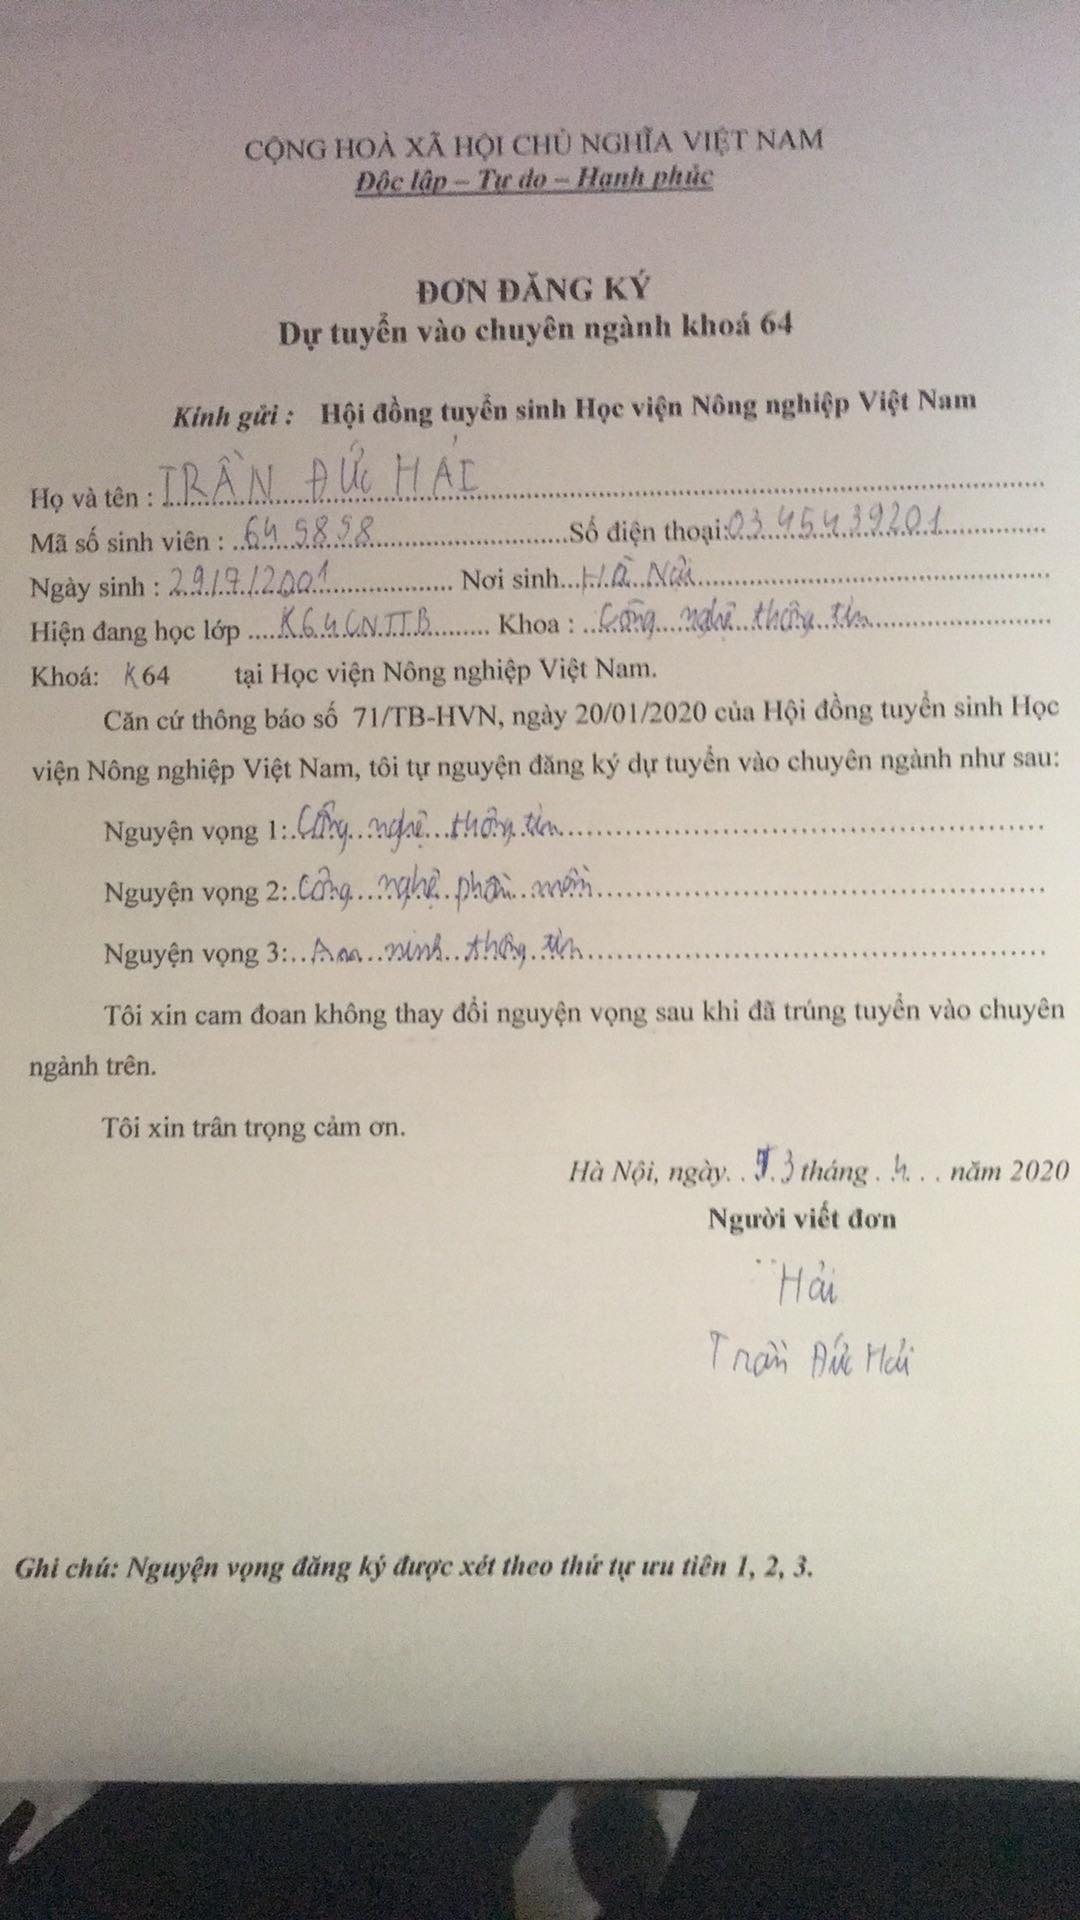 CỘNG HOÀ XÃ HỘI CHỦ NGHĨA VIỆT NAM
Độc lập – Tự do – Hạnh phúc
ĐƠN ĐĂNG KÝ
Dự tuyển vào chuyên ngành khoá 64
Kính gửi : Hội đồng tuyển sinh Học viện Nông nghiệp Việt Nam
Họ và tên : TRẦN ĐỨC HẢI
Mã số sinh viên : 649898 Số điện thoại: 0345439201
Ngày sinh : 29/7/2001 Nơi sinh Hà Nội
Hiện đang học lớp K64CNTTB Khoa : Công nghệ thông tin
Khoá: K64 tại Học viện Nông nghiệp Việt Nam.
Căn cứ thông báo số 71/TB-HVN, ngày 20/01/2020 của Hội đồng tuyển sinh Học
viện Nông nghiệp Việt Nam, tôi tự nguyện đăng ký dự tuyển vào chuyên ngành như sau:
Nguyện vọng 1: Công nghệ thông tin
Nguyện vọng 2: Công nghệ phần mềm
Nguyện vọng 3: An ninh thông tin
Tôi xin cam đoan không thay đổi nguyện vọng sau khi đã trúng tuyển vào chuyên
ngành trên.
Tôi xin trân trọng cảm ơn.
Hà Nội, ngày tháng 4 năm 2020
Người viết đơn
Hải
Trần Đức Hải
Ghi chú: Nguyện vọng đăng ký được xét theo thứ tự ưu tiên 1, 2, 3.